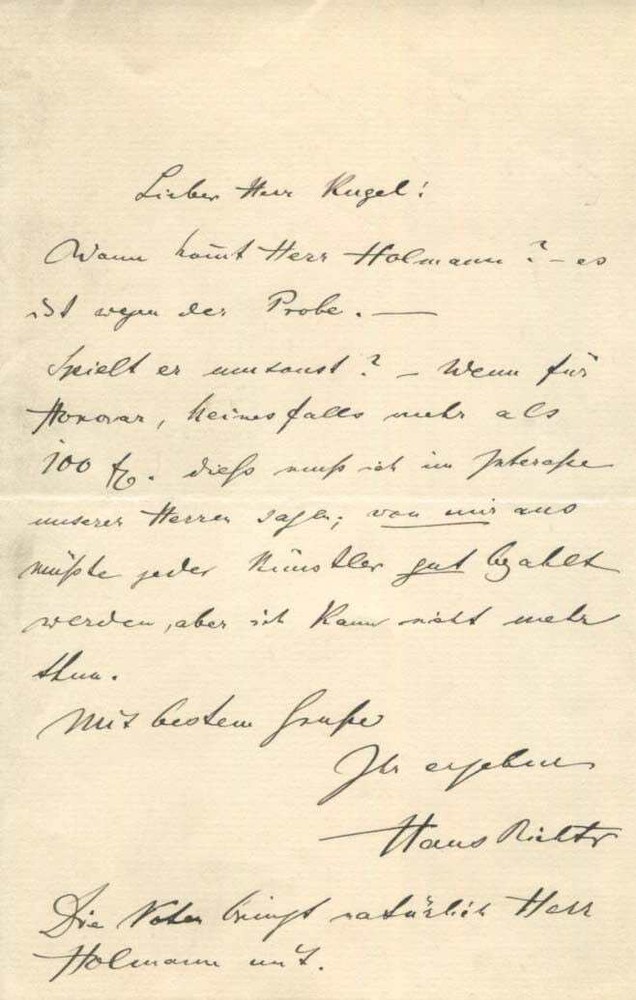 Lieber Herr Kugel!
Wann kom̄t Herr Holmann? – es
ist wegen der Probe. —
Spielt er umsonst? – Wenn für
Honorar, keinesfalls mehr als
100 fl. dieß muß ich im Interesse
unserer Herren sagen; von mir aus
müßte jeder Künstler gut bezahlt
werden, aber ich kann nicht mehr
thun.
Mit bestem Gruße
Ihr ergebener
Hans Richter
Die Noten bringt natürlich Herr
Holmann mit.